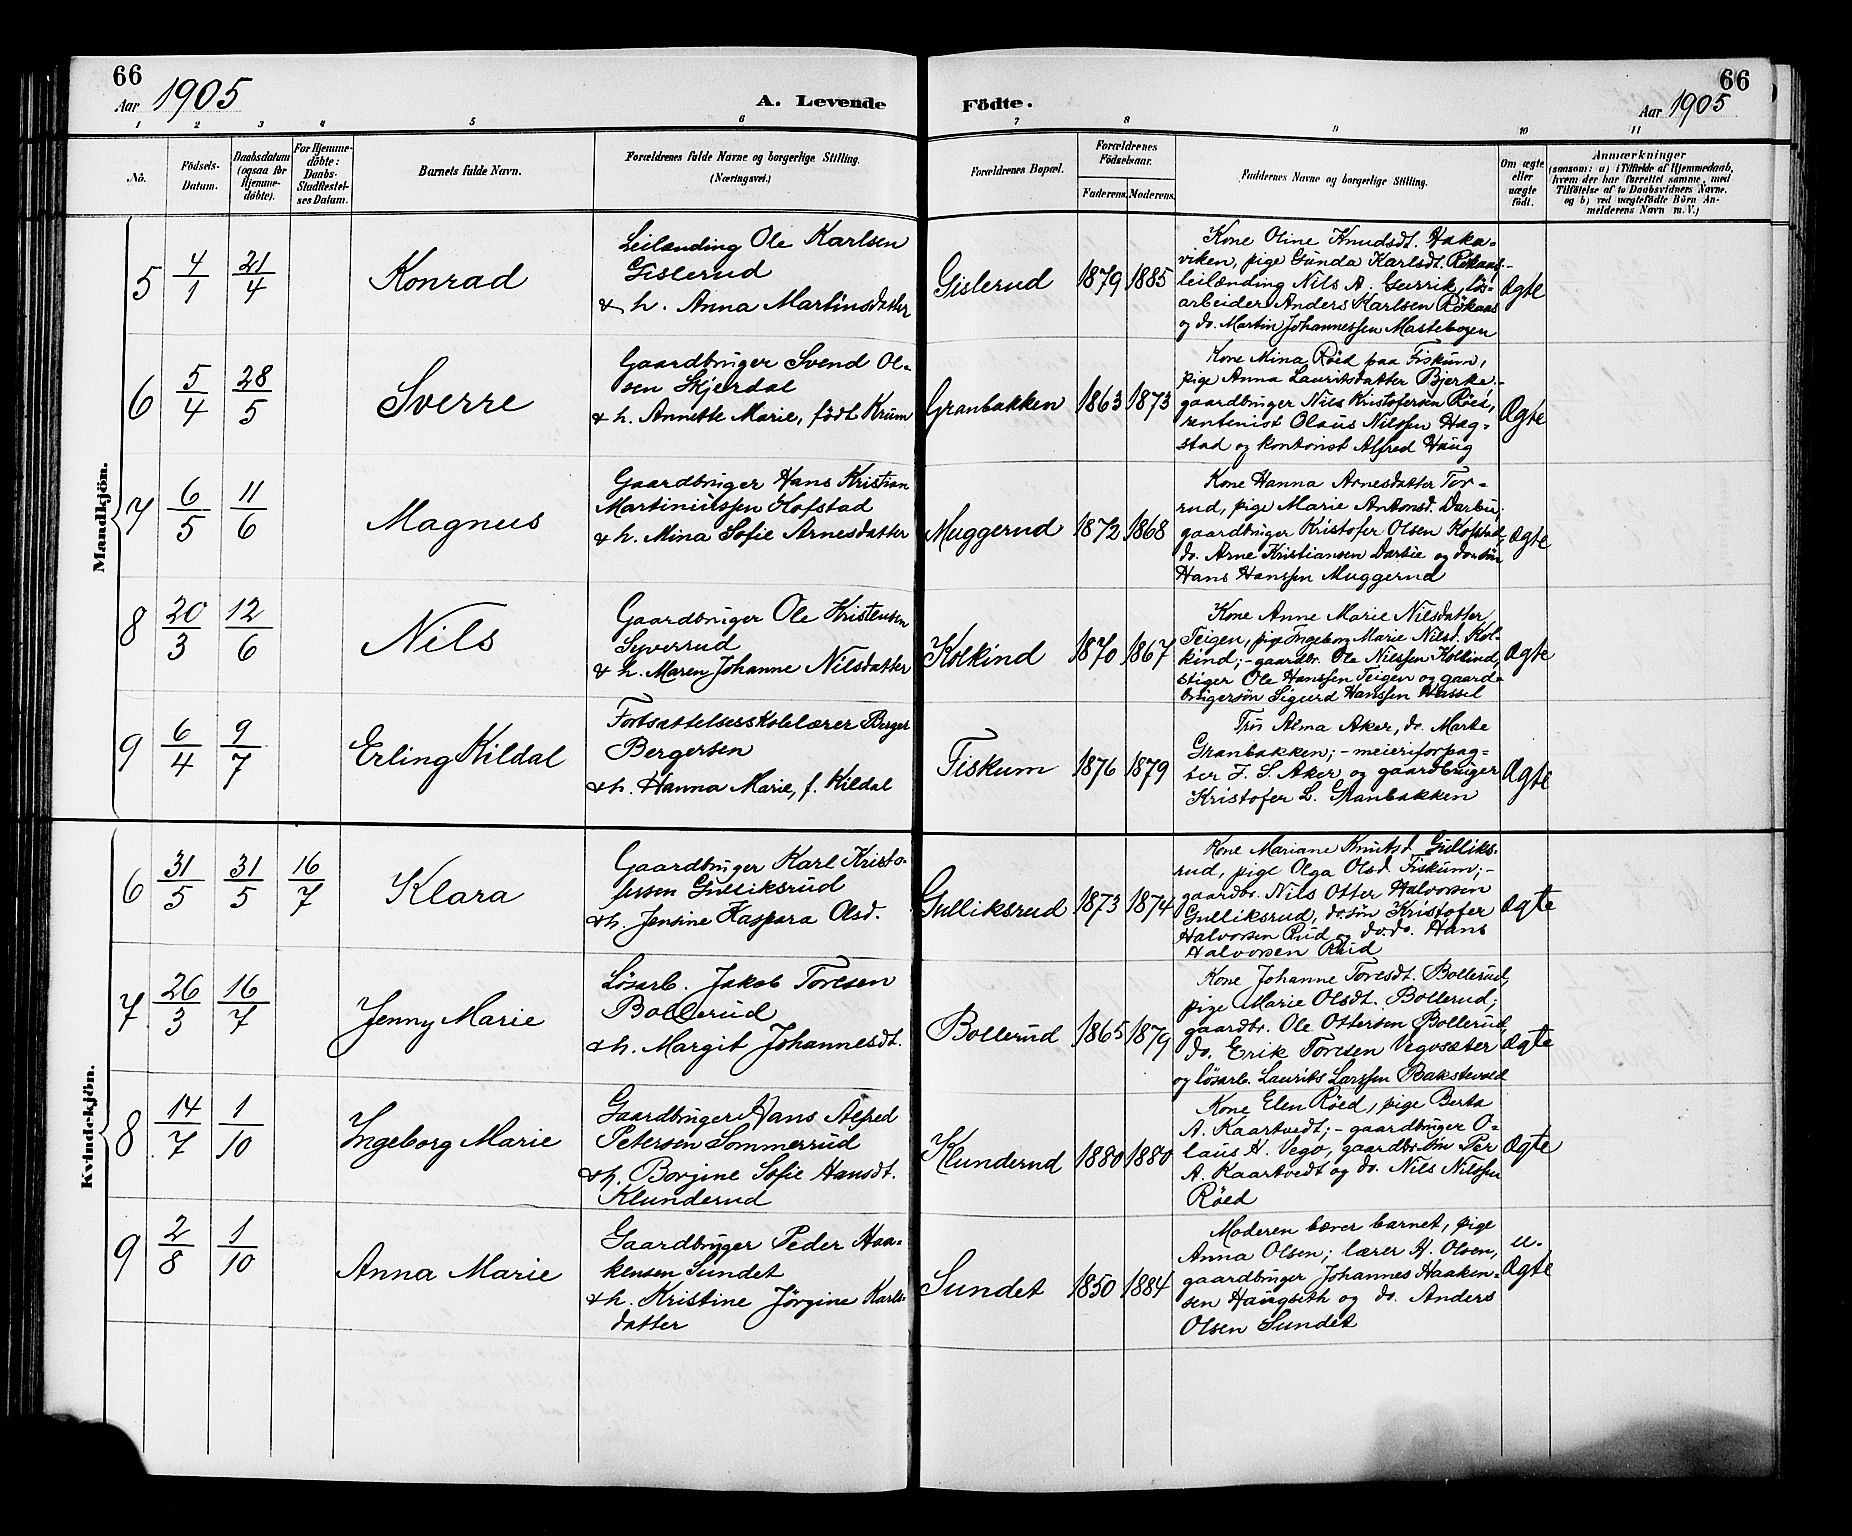 66
Aar 1905
A. Levende
Födte.
66
Aar 1905
1 2 3 4 5 6 7 8 9 10 11
No.
Födsels-
Datum.
Daabsdatum
(ogsaa for
Hjemme-
döbte).
For Hjemme-
döbte:
Daabs-
Stadfæstel-
ses Datum.
Barnets fulde Navn.
Forældrenes fulde Navne og borgerlige Stilling.
(Næringsvei.)
Forældrenes Bopæl.
Forældrenes
Födselsaar.
Faderens. Moderens.
Faddernes Navne og borgerlige Stilling.
Om ægte
eller
uægte
födt.
Anmærkninger
(saasom: a) i Tilfælde af Hjemmedaab,
hvem der har forrettet samme, med
Tilföielse af to Daabsvidners Navne,
og b) ved uægtefödte Börn An-
melderens Navn m. V.)
Mandkjön.
5 4/1 21/4 Konrad
Leilænding Ole Karlsen
Gislerud
& h. Anna Martinsdatter
Gislerud 1879 1885
Kone Oline Knudsdt. Haka-
viken, pige Gunda Karlsdt. Rökaas,
leilænding Nils A. Gurrik, lös-
arbeider Anders Karlsen Rökaas
og do. Martin Johannessen Mastebogen
Ægte
6 5/4 28/5 Sverre
Gaardbruger Svend Ol-
sen Skjerdal
& h. Annette Marie, født Krum
Granbakken 1863 1873
Kone Mina Röed paa Fiskum,
pige Anna Lauritsdatter Bjerke-
gaardbruger Nils Kristofersen Röed,
rentenist Olaus Nilssen Hag-
stad og kontorist Alfred Haug
Ægte
7 6/5 11/6 Magnus
Gaardbruger Hans Kristian
Martiniussen Hofstad
& h. Mina Sofie Arnesdatter
Muggerud 1872 1868
Kone Hanna Arnesdatter Tor-
rud, pige Marie Antonsd. Darbu,
gaardbruger Kristofer Olsen Kopstad
do. Arne Kristiansen Darbu og do. søn
Hans Hanssen Muggerud
Ægte
8 20/3 12/6 Nils
Gaardbruger Ole Kristensen
Syverrud
& h. Maren Johanne Nilsdatter
Kolkind 1870 1867
Kone Anne Marie Nilsdatter
Teigen, pige Ingeborg Marie Nilsd. Kol-
kind; - gaardbr. Ole Nilssen Kolkind,
stiger Ole Hanssen Teigen og gaard-
brugersön Sigurd Hanssen Hassel
Ægte
9 6/4 9/7 Erling Kildal
Fortsættelsesskolelærer Berger
Bergersen
& h. Hanna Marie, f. Kildal
Fiskum 1876 1879
Frü Alma Aker, do. Marte
Granbakken; - meieriforpag-
ter J. S. Aker og gaardbruger
Kristofer L. Granbakken
Ægte
Kvindekjön.
6 31/5 31/5 16/7 Klara
Gaardbruger Karl Kristo-
fersen Gulliksrud
& h. Jensine Kaspara Olsd.
Gulliksrud 1873 1874
Kone Mariane Knutsd. Gulliks-
rud, pige Olga Olsd. Fiskum; -
gaardbr. Nils Otter Halvorsen
Gulliksrud, do. søn Kristofer
Halvorsen Rud og do. do. Hans
Halvorsen Rud
Ægte
7 26/3 16/7 Jenny Marie
Løsarb. Jakob Toresen
Bollerud
& h. Margit Johannesdt.
Bollerud 1865 1879
Kone Johanne Toresdt. Bollerud,
pige Marie Olsdt. Bollerud;
gaardbr. Ole Ottersen Bollerud,
do. Erik Toresen Vegosæter
og løsarb. Laurits Larssen Bakstevald
Ægte
8 14/7 1/10 Ingeborg Marie
Gaardbruger Hans Alfred
Petersen Sommerrud
& h. Borgine Sofie Hansdt.
Klunderud
Klunderud 1880 1880
Kone Elen Röed, pige Berta
A. Kaartvedt; - gaardbruger O-
laus H. Vego, gaardbr. søn Per
A. Kaartvedt og do. Nils Nilssen
Röed
Ægte
9 2/8 1/10 Anna Marie
Gaardbruger Peder Haa-
kensen Sundet
& h. Kristine Jörgine Karls-
datter
Sundet 1850 1884
Moderen bærer barnet, pige
Anna Olsen; lærer H. Olsen,
gaardbruger Johannes Haaken-
sen Haugseth og do. Anders
Olsen Sundet
u-
Ægte